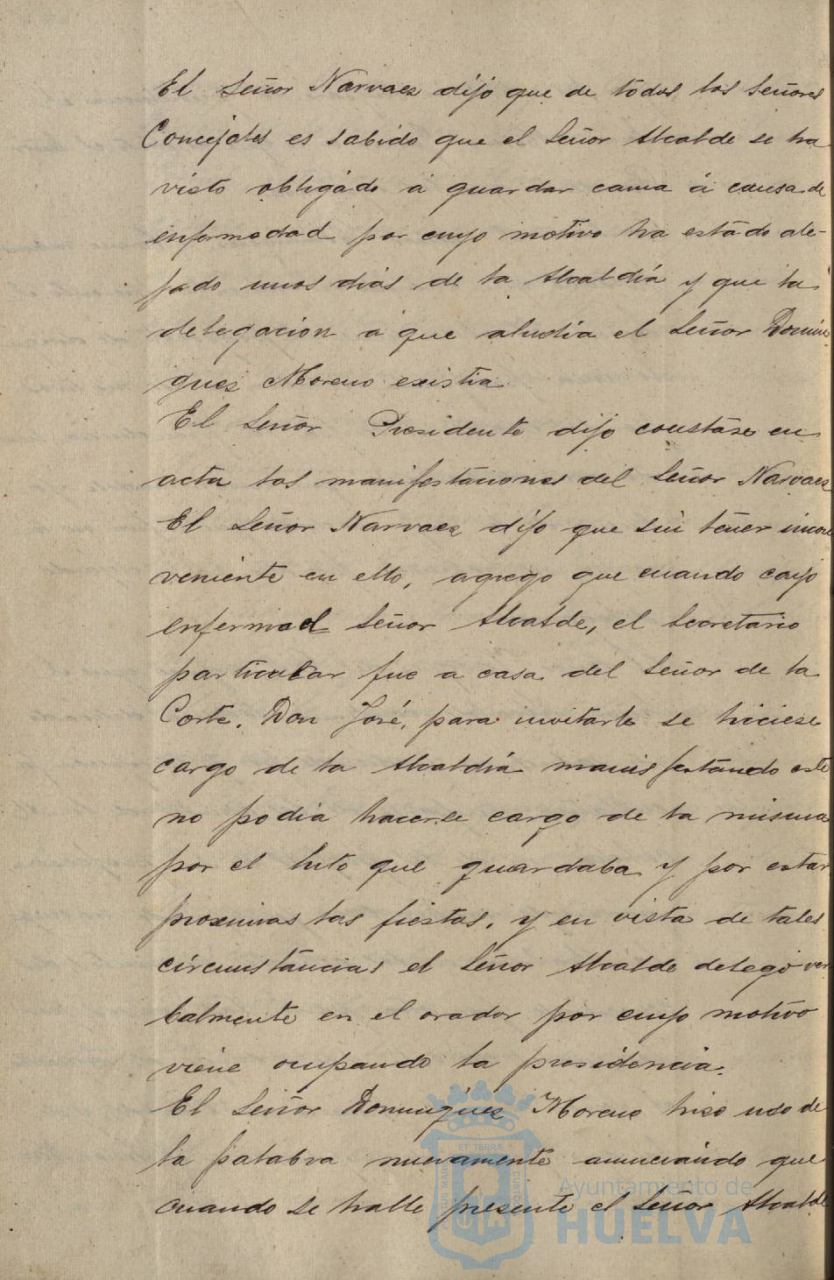 El Señor Narvaez dijo que de todos los Señores
Concejales es sabido que el Señor Alcalde se ha
visto obligado á guardar cama á causa de
enfermedad por cuyo motivo ha estado ale-
jado unos dias de la Alcaldía y que la
delegacion á que aludia el Señor Domin
guez Moreno existia
El Señor Presidente dijo constase en
acta las manifestaciones del Señor Narvaez
El Señor Narvaez dijo que sin tener incon
veniente en ello, agrego que cuando cayó
enfermo el Señor Alcalde, el Secretario
particular fue a casa del Señor de la
Corte, Don José, para invitarle se hiciese
cargo de la Alcaldía manifestando este
no podia hacerse cargo de la misma
por el luto que guardaba y por estar
proximas las fiestas, y en vista de tales
circunstancias el Señor Alcalde delegó ver
balmente en el orador por cuyo motivo
viene ocupando la presidencia.
El Señor Dominguez Moreno hizo uso de
la palabra nuevamente anunciando que
cuando se halle presente el Señor Alcalde
Ayuntamiento de
HUELVA